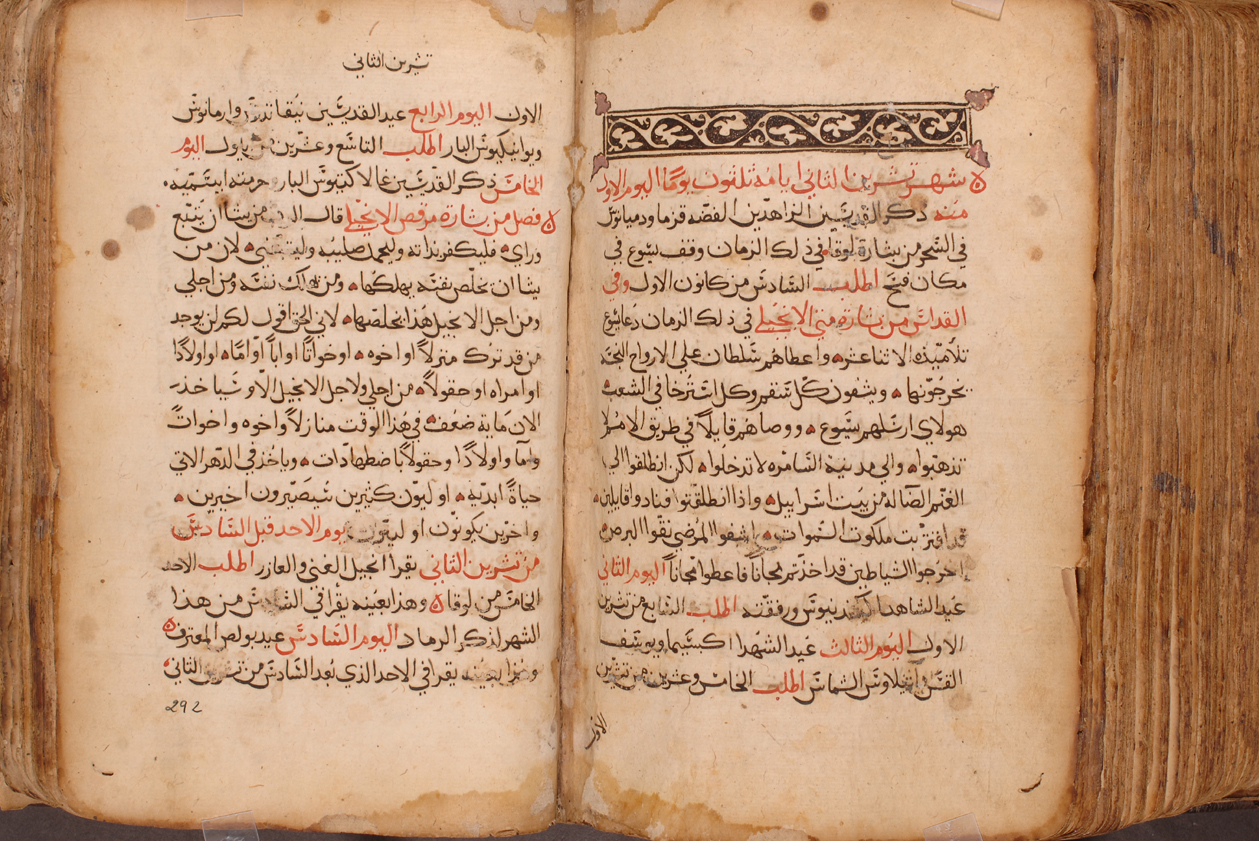 شهر تشرين الثاني ايامه ثلثون يومًا اليوم الاول
منه ذكر القديسين الزاهدين الفضه قزما ودميانوس
في السحر من بشارة لوقا في ذلك الزمان وقف يسوع في
مكان فيح اطلب السادس من كانون الاول وفي
القداس من بشارة متي الانجيلي في ذلك الزمان دعا يسوع
تلاميذه الاثنا عشر واعطاهم سلطان علي الارواح النجسه
يخرجونها ويشفون كل سقم وكل استرخا في الشعب
هولاي ارسلهم يسوع ووصاهم قايلاً في طريق الامم لا
تذهبوا والي مدينة السامره لا تدخلوا لكن انطلقوا الي
الغنم الضاله من بيت اسراييل واذا انطلقتوا فنادوا قايلين
قد اقتربت ملكوت السموات اشفوا المرضي نقوا البرص
اخرجوا الشياطين قد اخذتم مجاناً فاعطوا مجاناً اليوم الثاني
عيد الشاهد اكندينوس ورفقته اطلب السابع من تشرين
الاول اليوم الثالث عيد الشهدا اكبسيما ويوسف
القس وايتلاوس الشماس اطلب الخامس وعشرين من تشرين
الاول
تشرين الثاني
الاول اليوم الرابع عيد القديسين نيقاندرس وارمانوس
ويوانيكيوس البار اطلب التاسع وعشرين من ايلول اليوم
الخامس ذكر القديسين غالاكتيوس البار حرمته ابستميه
فصل من بشارة مرقص الانجيلي قال الرب من يشا ان يتبع
وراي فليكفر بذاته وليحمل صليبه وليتبعني لان من
يشا ان يخلص نفسه يهلكها ومن اهلك نفسه ومن اجلي
ومن اجل الانجيل هذا يخلصها لاني الحق اقول لكم لن يوجد
من قد ترك منزلاً او اخوه او خواتاً او اباً او امّاً او اولادًا
او امراه او حقولاً من اجلي ولاجل الانجيل الا وسياخذ
الان ماية ضعف في هذا الوقت منازلاً واخوه واخواتً
وامّا واولادًا وحقولاً باضطهادات وياخذ في الدهر الاتي
حياةً ابديه اوليون كثيرين سيصيرون اخيرين
واخرين يكونون اوليون يوم الاحد قبل السادس
من تشرين الثاني يقرا انجيل الغني والعازر اطلب الاحد
الخامس من لوقا وهذا بعينه يقرا في السادس من هذا
الشهر لذكر الرماد اليوم السادس عيد بولص المعترف
وهذا بعينه يقرا في الاحد الذي بعد السادس من تشرين الثاني
292